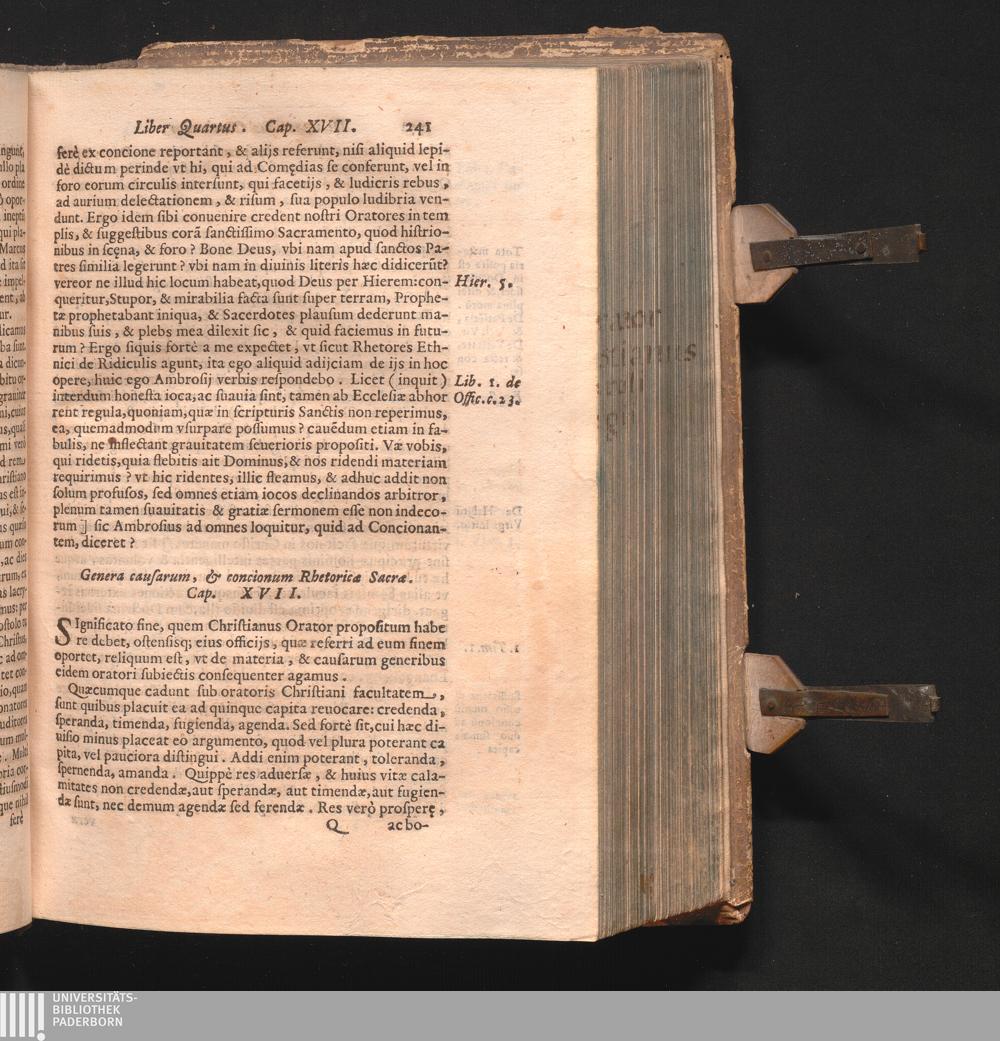 Liber Quartus. Cap. XVII. 241
ferè ex concione reportant, & alijs referunt, nisi aliquid lepi-
dè dictum perinde vt hi, qui ad Comędias se conferunt, vel in
foro eorum circulis intersunt, qui facetijs, & ludicris rebus,
ad aurium delectationem, & risum, sua populo ludibria ven-
dunt. Ergo idem sibi conuenire credent nostri Oratores in tem
plis, & suggestibus corã sanctissimo Sacramento, quod histrio-
nibus in scęna, & foro? Bone Deus, vbi nam apud sanctos Pa-
tres similia legerunt? vbi nam in diuinis literis hæc didicerũt?
vereor ne illud hic locum habeat, quod Deus per Hierem: con-
Hier. 5.
queritur, Stupor, & mirabilia facta sunt super terram, Prophe-
tæ prophetabant iniqua, & Sacerdotes plausum dederunt ma-
nibus suis, & plebs mea dilexit sic, & quid faciemus in futu-
rum? Ergo siquis fortè a me expectet, vt sicut Rhetores Eth-
nici de Ridiculis agunt, ita ego aliquid adijciam de ijs in hoc
opere, huic ego Ambrosij verbis respondebo. Licet (inquit)
Lib. 1. de
interdum honesta ioca, ac suauia sint, tamen ab Ecclesiæ abhor
Offic. c. 23.
rent regula, quoniam, quæ in scripturis Sanctis non reperimus,
ea, quemadmodum vsurpare possumus? cauẽdum etiam in fa-
bulis, ne inflectant grauitatem seuerioris propositi. Væ vobis,
qui ridetis, quia flebitis ait Dominus, & nos ridendi materiam
requirimus? vt hic ridentes, illic fleamus, & adhuc addit non
solum profusos, sed omnes etiam iocos declinandos arbitror,
plenum tamen suauitatis & gratiæ sermonem esse non indeco-
rum ] sic Ambrosius ad omnes loquitur, quid ad Concionan-
tem, diceret?
Genera causarum, & concionum Rhetoricæ Sacræ.
Cap. XVII.
SIgnificato fine, quem Christianus Orator propositum habe
re debet, ostensisq; eius officijs, quæ referri ad eum finem
oportet, reliquum est, vt de materia, & causarum generibus
eidem oratori subiectis consequenter agamus.
Quæcumque cadunt sub oratoris Christiani facultatem,
sunt quibus placuit ea ad quinque capita reuocare: credenda,
speranda, timenda, fugienda, agenda. Sed fortè sit, cui hæc di-
uisio minus placeat eò argumento, quod vel plura poterant ca
pita, vel pauciora distingui. Addi enim poterant, toleranda,
spernenda, amanda. Quippè res aduersæ, & huius vitæ cala-
mitates non credendæ, aut sperandæ, aut timendæ, aut fugien-
dæ sunt, nec demum agendæ sed ferendæ. Res verò prosperę,
Q ac bo-
UNIVERSITÄTS-
BIBLIOTHEK
PADERBORN